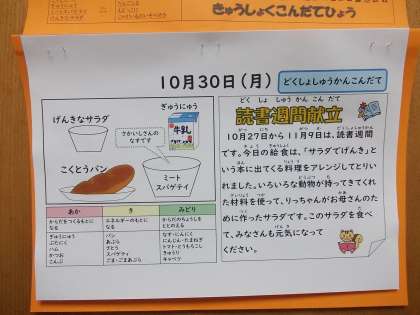 きゅうしょくこんだてひょう
10月30日（月）
どくしょしゅうかんこんだて
ぎゅうにゅう
牛乳
げんきなサラダ
さかいしさんの
なすです
こくとうパン
ミート
スパゲティ
どくしょしゅうかんこんだて
読書週間献立
10月27日から11月9日は、読書週間
です。今日の給食は、「サラダでげんき」と
いう本に出てくる料理をアレンジしてとりい
れました。いろいろな動物が持ってきてくれ
た材料を使って、りっちゃんがお母さんのた
めに作ったサラダです。このサラダを食べ
て、みなさんも元気になって
ください。
あか
き
みどり
からだをつくるもとに
なる
エネルギーのもとに
なる
からだのちょうしを
ととのえる
ぎゅうにゅう
ぶたにく
ハム
かつお
こんぶ
パン
あぶら
さとう
スパゲティ
ごま・ごまあぶら
なす・にんにく
にんじん・たまねぎ
トマト・とうもろこし
きゅうり
キャベツ